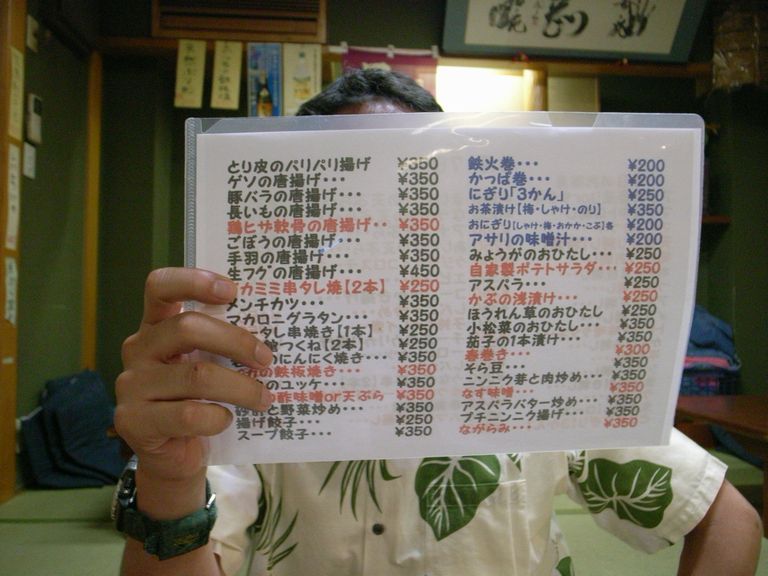 とり皮のパリパリ揚げ ¥350
ゲソの唐揚げ・・・ ¥350
豚バラの唐揚げ・・・ ¥350
長いもの唐揚げ・・・ ¥350
鶏ヒザ軟骨の唐揚げ・・ ¥350
ごぼうの唐揚げ・・・ ¥350
手羽の唐揚げ・・・ ¥350
生フグの唐揚げ・・・ ¥450
カミミ串タレ焼【2本】 ¥250
メンチカツ・・・ ¥350
マカロニグラタン・・・ ¥350
タレ串焼き【1本】 ¥250
つくね【2本】 ¥250
のにんにく焼き・・・ ¥350
の鉄板焼き・・・ ¥350
のユッケ・・・ ¥350
の酢味噌or天ぷら ¥350
砂肝と野菜炒め・・・ ¥350
揚げ餃子・・・ ¥250
スープ餃子・・・ ¥350
鉄火巻・・・ ¥200
かっぱ巻・・・ ¥200
にぎり「3かん」 ¥250
お茶漬け【梅・しゃけ・のり】 ¥350
おにぎり【しゃけ・梅・おかか・こぶ】各 ¥200
アサリの味噌汁・・・ ¥200
みょうがのおひたし・・・ ¥250
自家製ポテトサラダ・・・ ¥250
アスパラ・・・ ¥250
かぶの浅漬け・・・ ¥250
ほうれん草のおひたし ¥250
小松菜のおひたし・・・ ¥350
茄子の1本漬け・・・ ¥350
春巻き・・・ ¥300
そら豆・・・ ¥350
ニンニク芽と肉炒め・・・ ¥350
なす味噌・・・ ¥350
アスパラバター炒め・・・ ¥350
プチニンニク揚げ・・・ ¥350
ながらみ・・・ ¥350